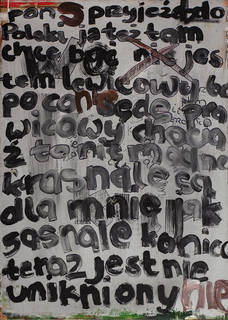 pan S przyjeżdżdo
Polski ja też tam
chcę być nie jes
tem lewicowy bo
po co będę pra
wicowy choćia
z to nie modne
krasnale są
dla mnie jak
sasnale konico
teraz jest nie
unikniony nie